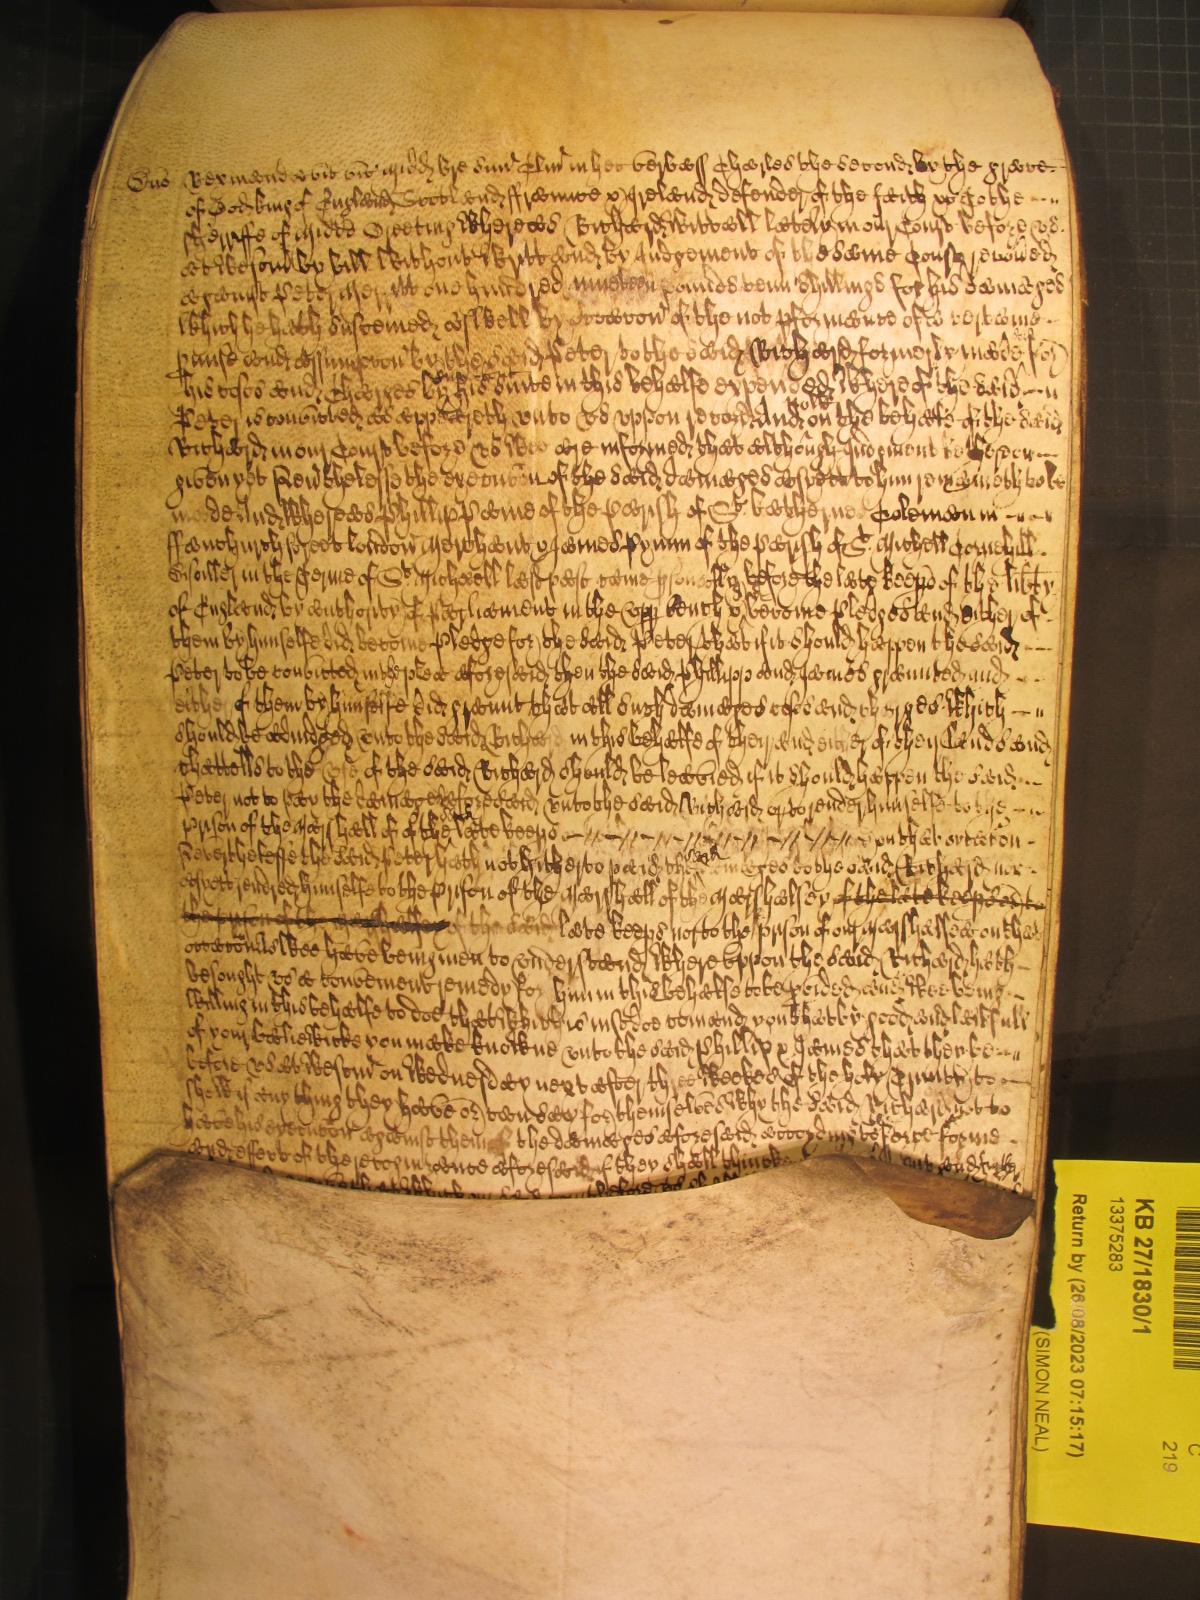 Dns Rex mand vic bre suu Claus in hec verba ss Charles the second by the grace
of God king of England Scotland ffrance & Ireland defender of the faith &c To the
Sheriffe of Midds Greeting Whereas Richard Witcall lately in our Court before us
at Westm by bill without writt and by Judgement of the same Court recovered
against Peter one hundred nineteen poundes tenn shillings for his damages
which he hath susteined aswell by occacon of the not pformance of certaine
pmise and assumpcon by the said Peter to the said Richard formerly made as for
his costs and charges by him about his suite in this behalfe expended Whereof the said
Peter is convicted as appeareth unto us uppon record And now on the behalfe of the said
Richard in our Court before us Wee are informed that although Judgement be thereon
given yet Neverthelesse the execucon of the said damages as yett to him remayneth to be
made And Whereas Phillip Payne of the Parish of St Katherine Coleman in
ffanchurch street London Merchant & James Pymm of the parish of St Michell Cornehill
in the Terme of St Michaell last past came psonally before the late keeps of the libty
of England by authority of Parliament in the upp bench & become Pledges and either of
them by himselfe did become Pledge for the said Peter that if it should happen the said
Peter to be convicted in the plea aforesaid then the said Phillipp and James graunted and
either of them by himselfe did graunt that all such damages costs and charges which
should be adiudged unto the said Richard in this behalfe of their and either of their lands and
chattells to the use of the said Richard should be leavied if it should happen the said
Peter not to pay the damages aforesaid unto the said Richard or to render himselfe to the
prison of the Marshall of the said late keeps on that occacon
Neverthelesse the said Peter hath not hitherto paid the said damages to the said Richard nor
as yett rendred himselfe to the prison of the Marshall of the Marshalsey of the late keeps
the prison of the of the said late keeps nor to the prison of our Marshallsea on that
occacon as Wee have being given to understand Whereuppon the said Richard hath
besought us a convenient remedy for him in this behalfe to be pvided and Wee being
willing in this behalfe to doe that which is iust doe comand you that by good and lawfull
of your bailiwicke you make knowne unto the said Phillip & James that they be
before us at Westm on Wednesday next after three weekes of the holy Trinity to
shew if any thing they have or can say for themselves why the said Richard ought not to
have his execucon against them of the damages aforesaid according to the force forme
and effect of the recognizance aforesaid if they shall thinke
KB 27/1830/1
13375283
Return by (26/08/2023 07:15:17)
(SIMON NEAL)
C
219